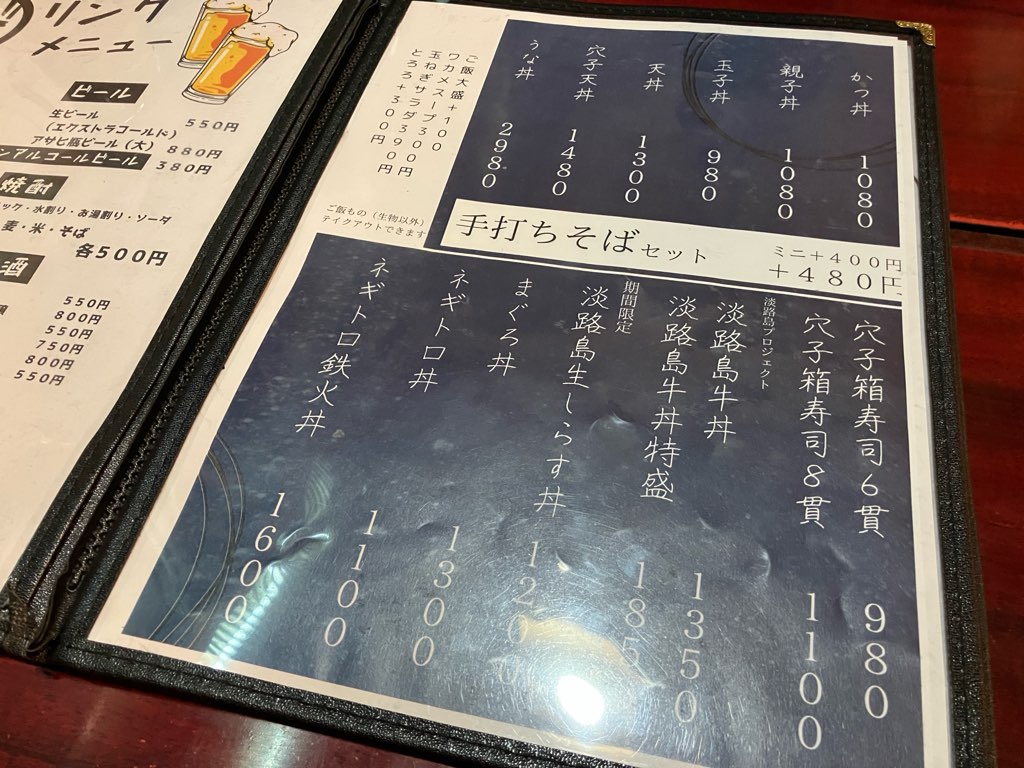 リンク
メニュー
ビール
生ビール
(エクストラコールド)
550円
アサヒ瓶ビール(大) 880円
ンアルコールビール 380円
焼酎
ック・水割り・お湯割り・ソーダ
麦・米・そば
各500円
酒
550円
800円
550円
750円
800円
550円
かつ丼 1080
親子丼 1080
玉子丼 980
天丼 1300
穴子天丼 1480
うな丼 2980
ご飯大盛+100
ワカメスープ300
玉ねぎサラダ390円
とろろ+300円
ご飯もの(生物以外)
テイクアウトできます
手打ちそばセット
ミニ+400円
+480円
穴子箱寿司6貫 980
穴子箱寿司8貫 1100
淡路島プロジェクト
淡路島牛丼 1350
淡路島牛丼特盛 185
期間限定
淡路島生しらす丼 120
まぐろ丼 1300
ネギトロ丼 1100
ネギトロ鉄火丼 1600